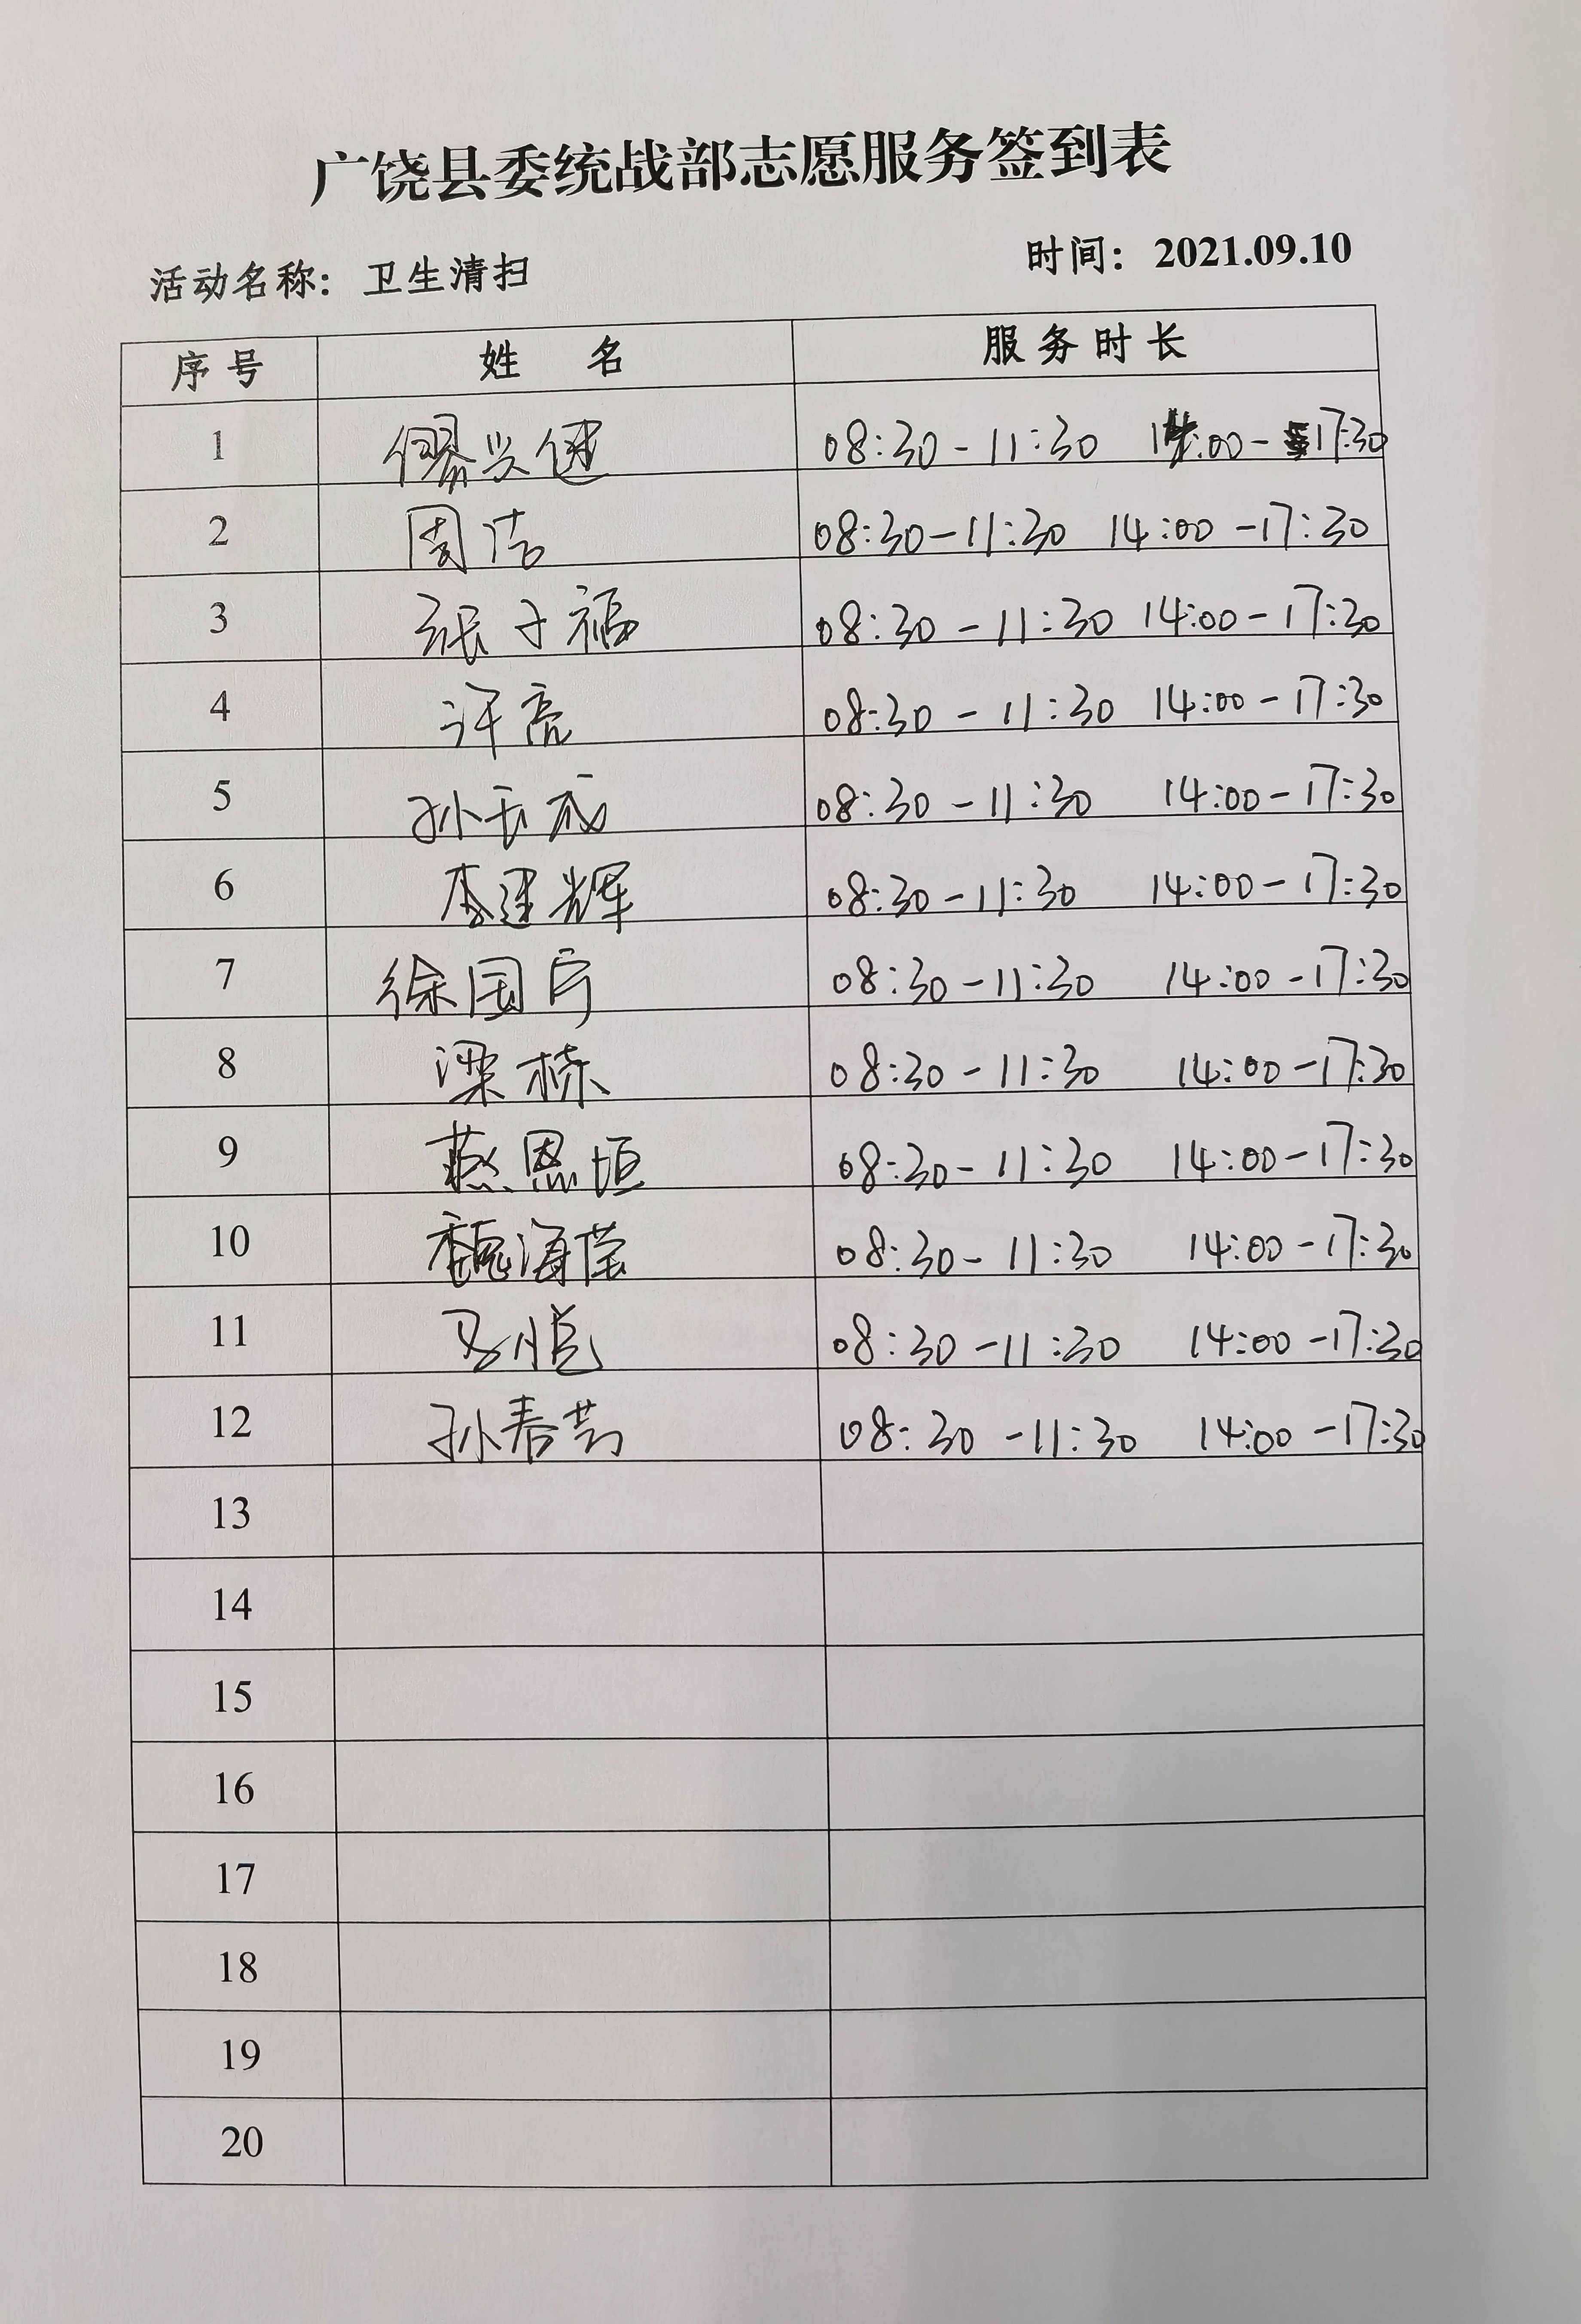 广饶县委统战部志愿服务签到表
活动名称：卫生清扫 时间：2021.09.10
序号 姓名 服务时长
1 兴健 08:30-11:30 14:00-17:30
2 周洁 08:30-11:30 14:00-17:30
3 张子福 08:30-11:30 14:00-17:30
4 许亮 08:30-11:30 14:00-17:30
5 孙玉成 08:30-11:30 14:00-17:30
6 李建辉 08:30-11:30 14:00-17:30
7 徐国 08:30-11:30 14:00-17:30
8 梁栋 08:30-11:30 14:00-17:30
9 燕恩垣 08:30-11:30 14:00-17:30
10 魏海莹 08:30-11:30 14:00-17:30
11 马悦 08:30-11:30 14:00-17:30
12 孙春芳 08:30-11:30 14:00-17:30
13
14
15
16
17
18
19
20